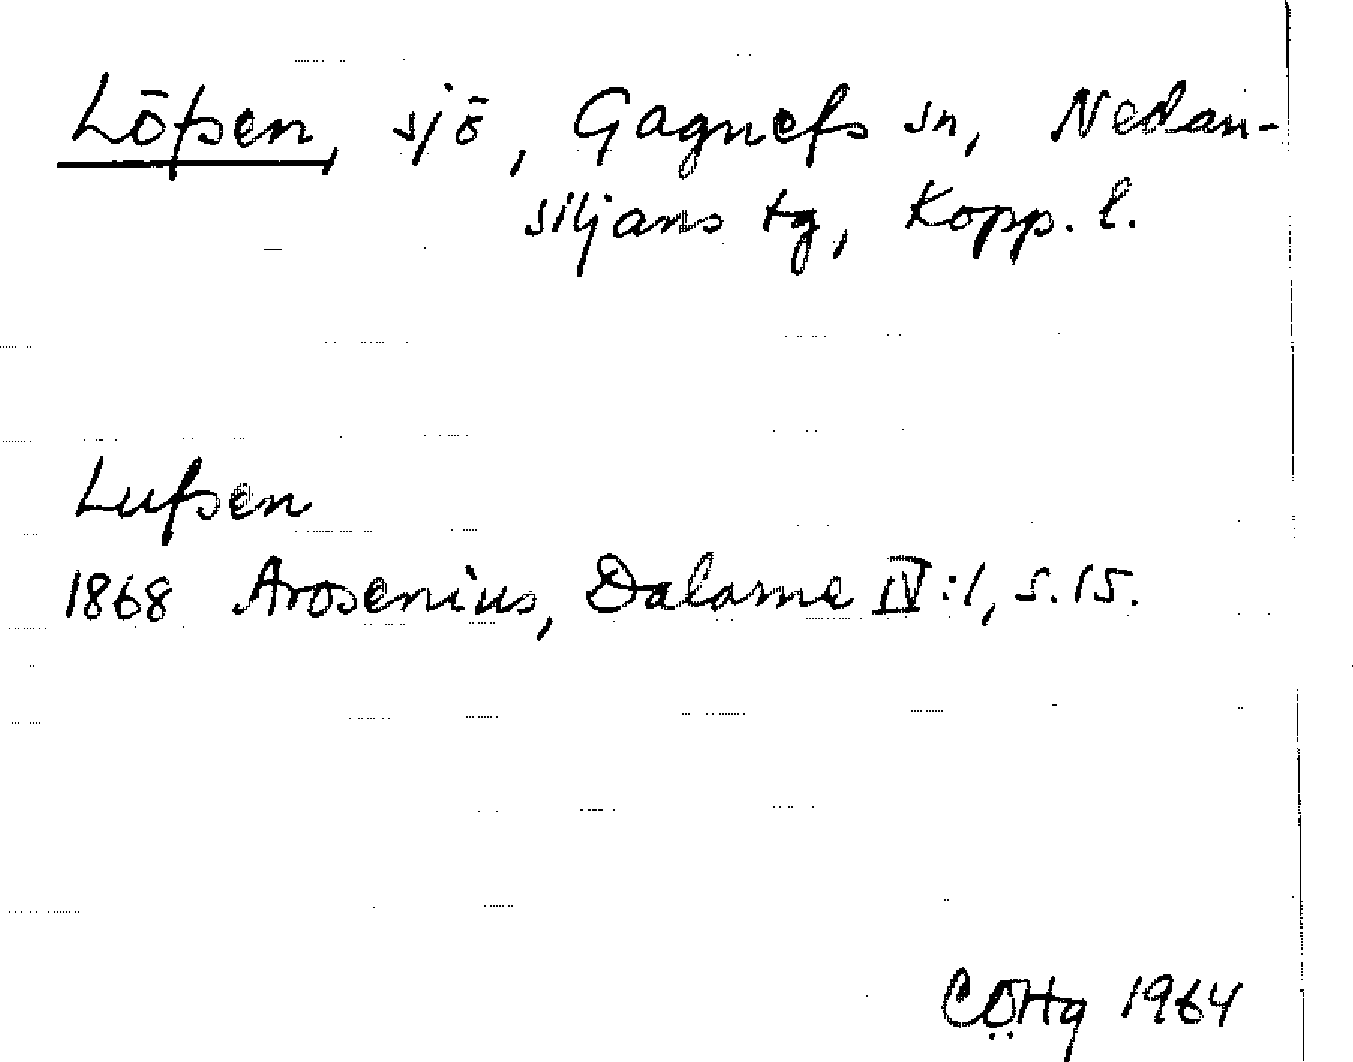 Löfsen, sjö, Gagnefs sn, Nedan-
siljans tg, Kopp. l.
Lufsen
1868 Arosenius, Dalarne IV:1, s. 15.
CÖHg 1964